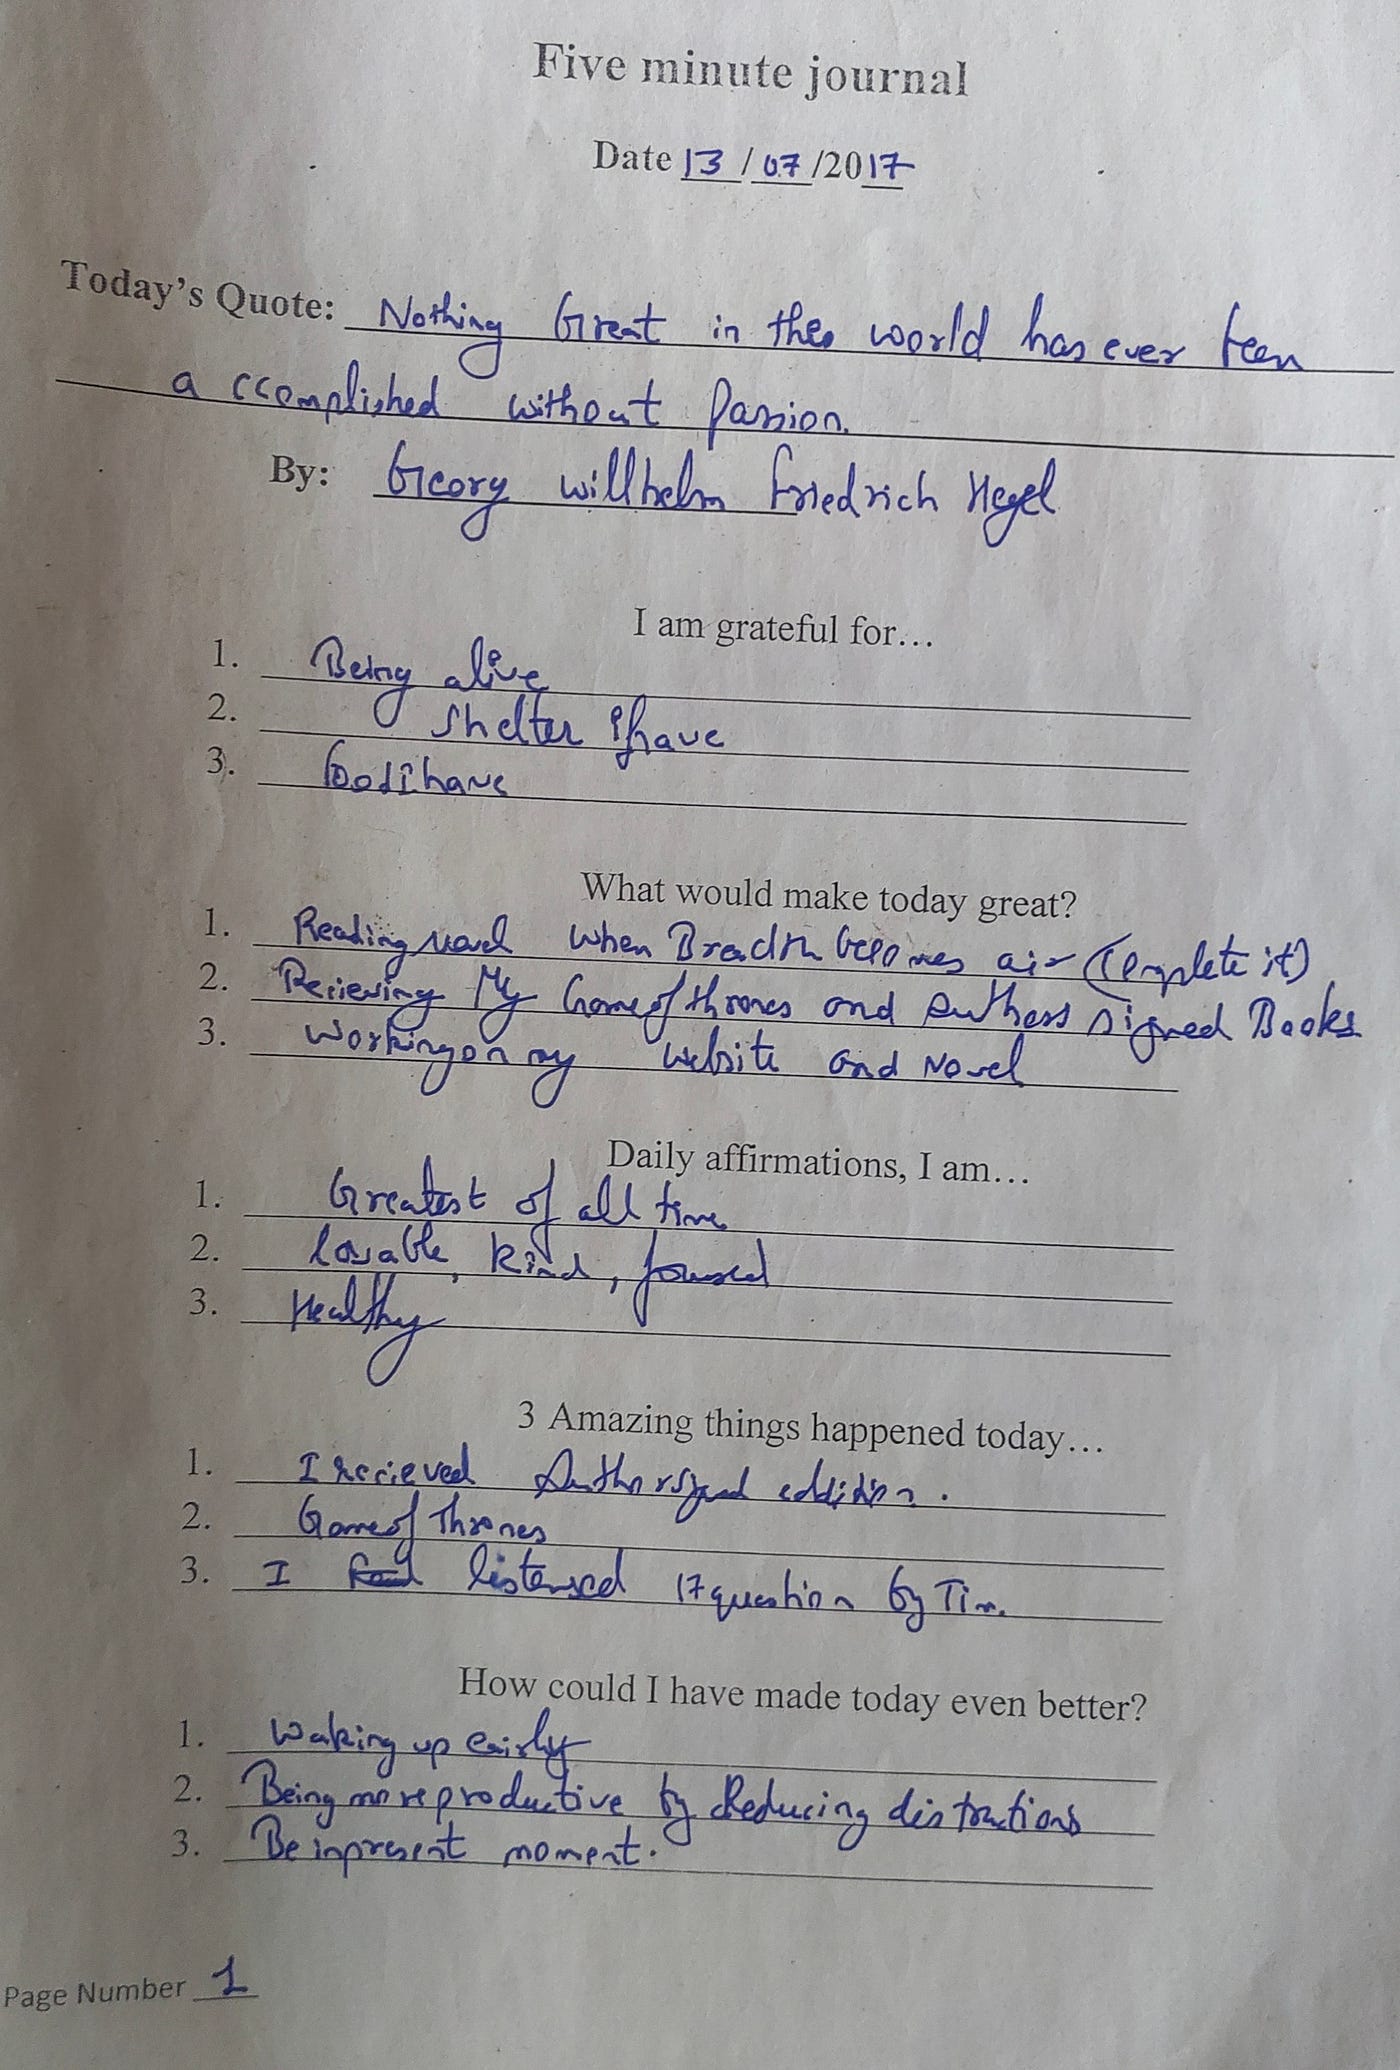 Five minute journal
Date 13/07/2017
Today's Quote: Nothing Great in the world has ever been
accomplished without Passion.
By: Georg Willhelm Friedrich Hegel
I am grateful for...
1. Being alive
2. Shelter I have
3. food I have
What would make today great?
1. Reading novel When Breadth becomes air (Complete it)
2. Recieving My Game of thrones and Authors signed Books
3. Working on my website and Novel
Daily affirmations, I am...
1. Greatest of all time
2. lovable, kind, focused
3. Healthy
3 Amazing things happened today...
1. I recieved Author signed eddition.
2. Game of Thrones
3. I listensed 17 question by Tim.
How could I have made today even better?
1. Waking up
2. Being more productive by Reducing distractions
3. Be in present moment.
Page Number 1